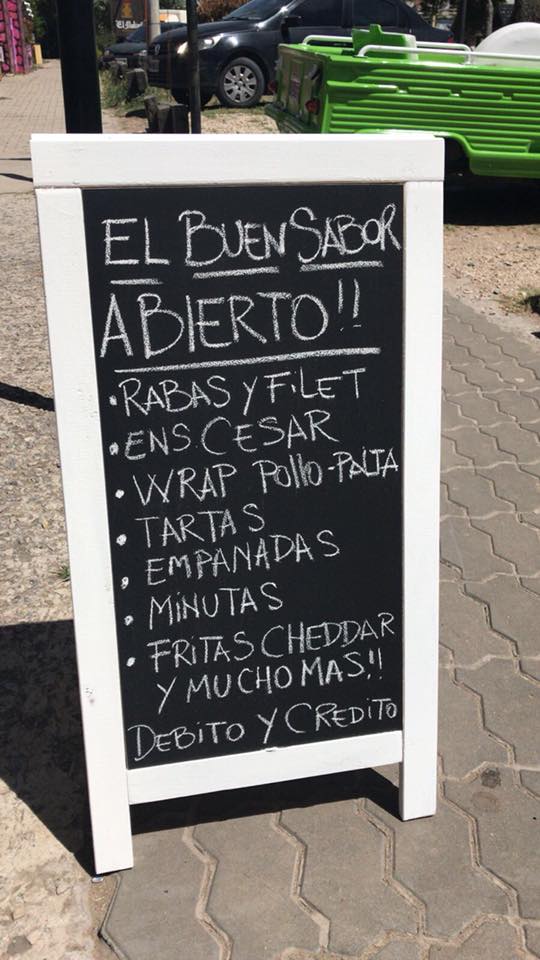 EL BUEN SABOR
ABIERTO!!
• RABAS Y FILET
• ENS CESAR
• WRAP Pollo-PALTA
• TARTAS
• EMPANADAS
• MINUTAS
• FRITAS CHEDDAR
Y MUCHO MAS!!
DEBITO Y CREDITO